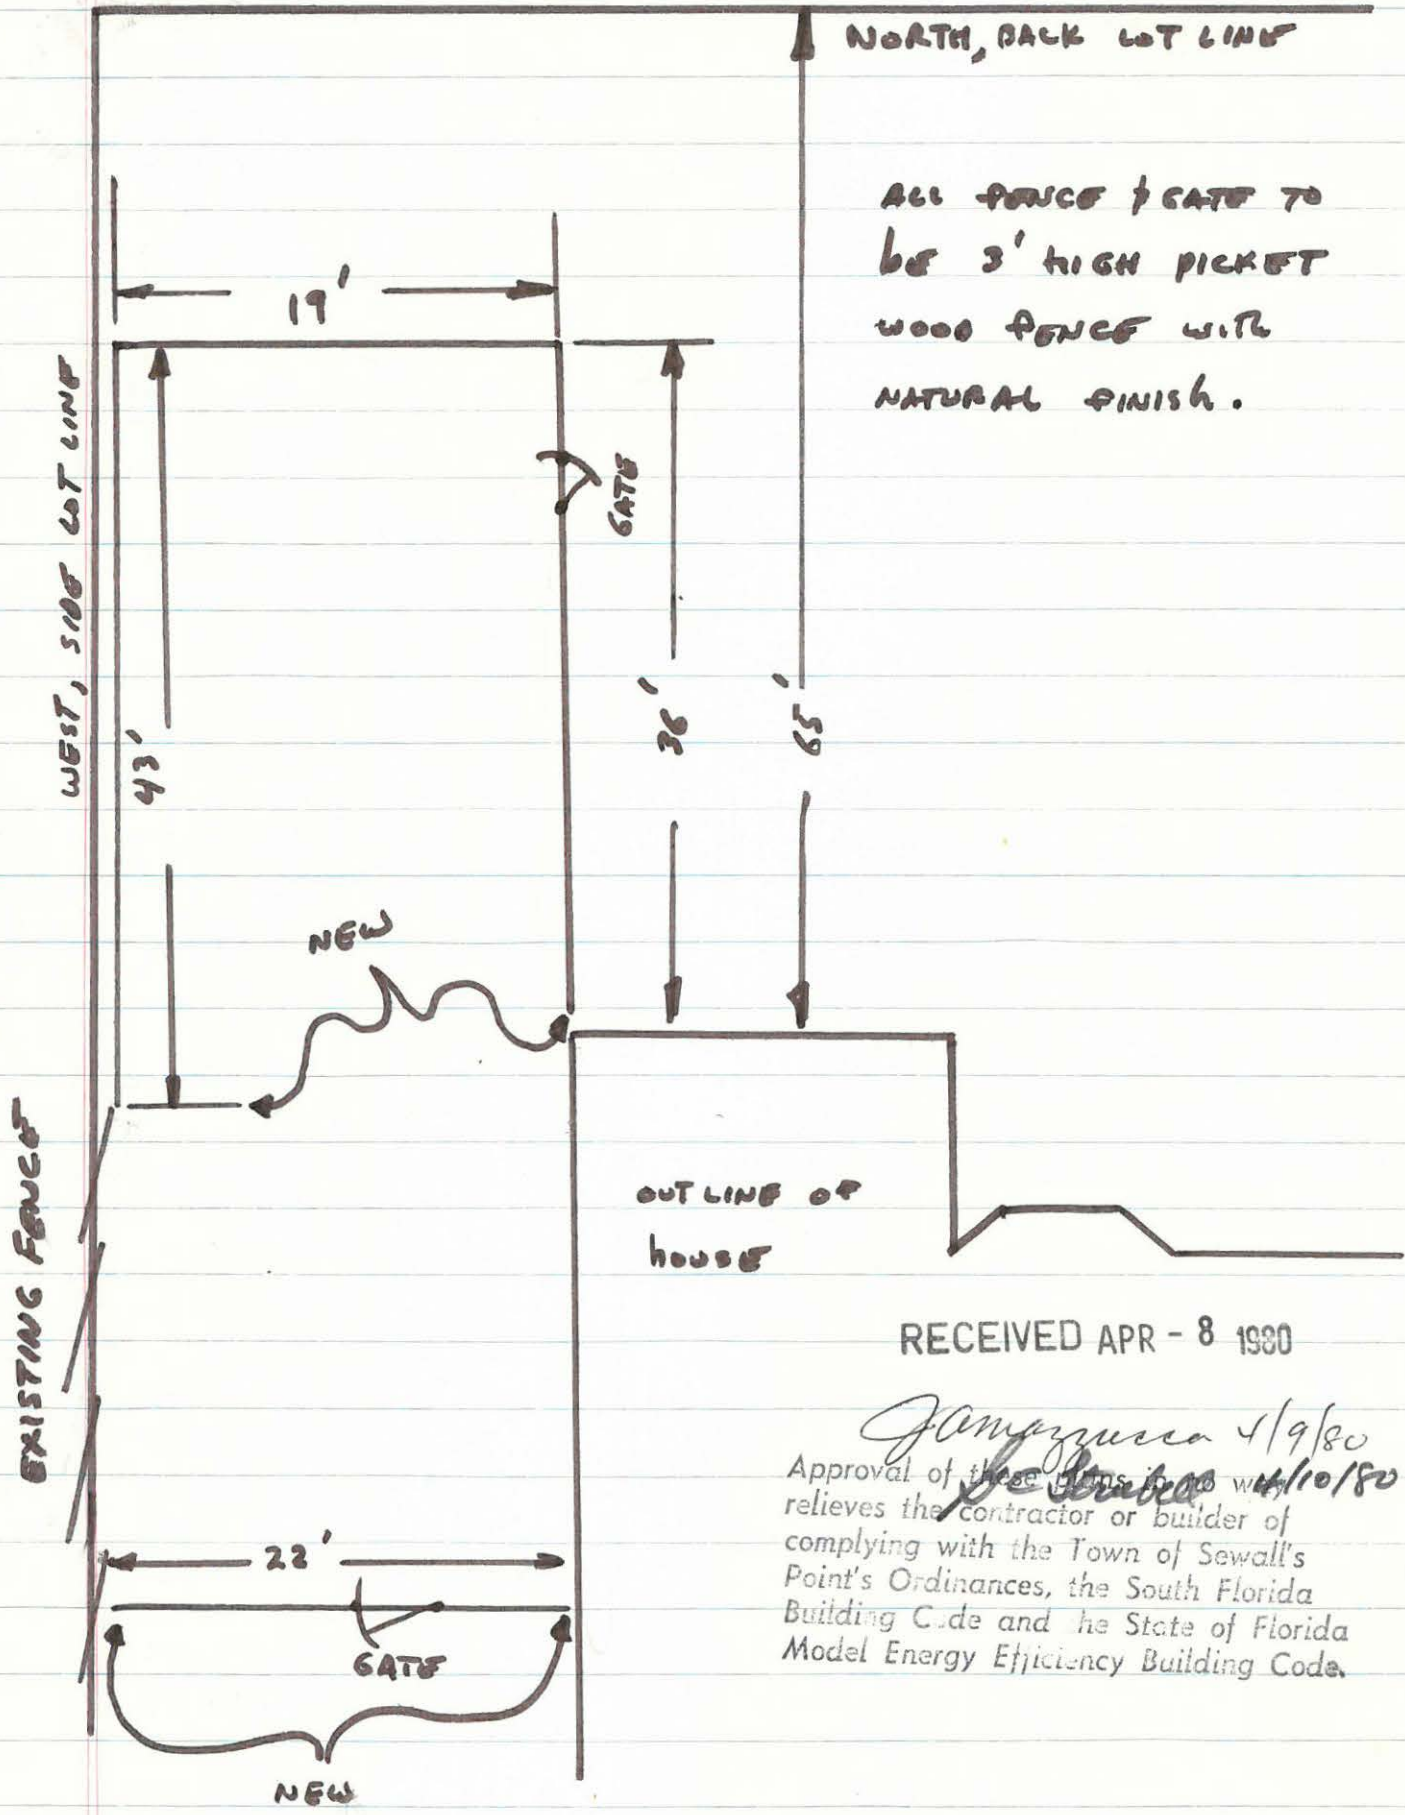 NORTH, BACK LOT LINE
ALL FENCE & GATE TO
be 3' HIGH PICKET
WOOD FENCE WITH
NATURAL FINISH.
19'
WEST, SIDE LOT LINE
GATE
43'
36'
65'
NEW
EXISTING FENCE
OUTLINE OF
HOUSE
RECEIVED APR - 8 1980
4/9/80
4/10/80
Approval of these plans in no way
relieves the contractor or builder of
complying with the Town of Sewall's
Point's Ordinances, the South Florida
Building Code and the State of Florida
Model Energy Efficiency Building Code.
22'
GATE
NEW